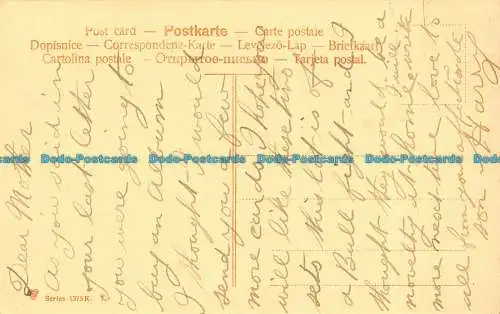 Post card – Postkarte – Carte postale
Dopisnice – Correspondenz-Karte – Levelező-Lap – Briefkaart
Cartolina postale – Открытое письмо – Tarjeta postal.
Dear Mother
As you said in
your last letter
you were going to
buy an album
I thought I would
send you a few
more cards. I hope you
will like these two
sets this one is of
a Bull fight and I
thought they would be a
novelty
more next time love to
all from your affectionate
son Harry
Series 1575 K.
Dodo-Postcards Dodo-Postcards Dodo-Postcards Dodo-Postcards Dodo-Postcards
Dodo-Postcards Dodo-Postcards Dodo-Postcards Dodo-Postcards Dodo-Postcards